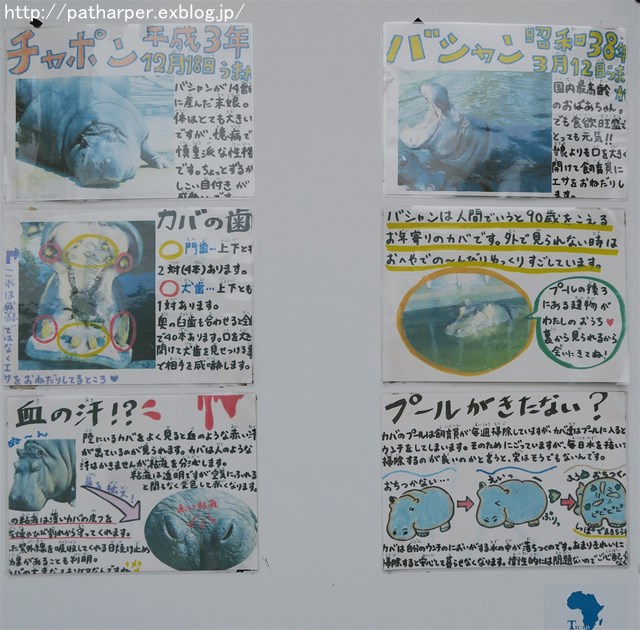 http://patharper.exblog.jp/
チャポン 平成3年
12月18日うまれ
バシャンが14齢
に産んだ末娘。
体はとても大きい
ですが、臆病で
慎重派な性格
です。ちょっとずるが
しこい目付きが
バシャン 昭和38年
3月12日うま
国内最高齢
のおばあちゃん。
でも食欲旺盛で
とっても元気!!
娘よりも口を大きく
開けて飼育員に
エサをおねだりし
ます。
カバの歯
門歯…上下とも
2対(4本)あります。
犬歯…上下とも
1対あります。
奥の臼歯も合わせると全
で40本あります。口を大
開けて犬歯を見せつける事
で相手を威嚇します。
これは威嚇ではなくエサをおねだりしてるところ♥
バシャンは人間でいうと90歳をこえる
お年寄りのカバです。外で見られない時は
おへやでの～んびりゆっくりすごしています。
プールの後ろ
にある建物が
わたしのおうち♥
裏から見られるから
会いにきてね!
血の汗!?
陸にいるカバをよく見ると血のような赤い汗
が出ているのが見られます。カバは人のような
汗はかきませんが粘液を分泌します。
粘液は透明ですが空気にふれる
と間もなく変色して赤くなります。
赤い粘液
の粘液は薄いカバの皮フを
乾燥やひび割れから守ってくれます。
た紫外線を吸収してくれる日焼け止め
効果があることも判明。
プールがきたない?
カバのプールは飼育員が毎週掃除していますが、カバ達はプールに入ると
ウンチをしてしまいます。そのためにごっていますが、毎日水を抜いて
掃除するのが良いのかと言うと、実はそうでもないんです。
おちつかない…
ぷりっ
カバは自分のウンチのにおいがする水の中が落ちつくのです。あまりきれいに
掃除すると安心して暮らせなくなります。衛生的には問題ないのでご心配